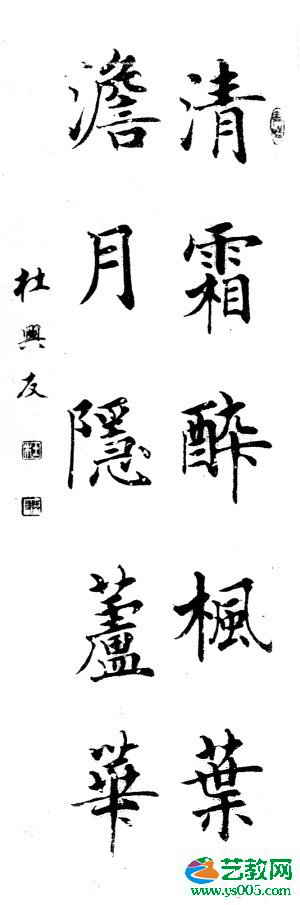 清霜醉楓葉
澹月隱蘆華
杜興友
艺教网
www.ys005.com